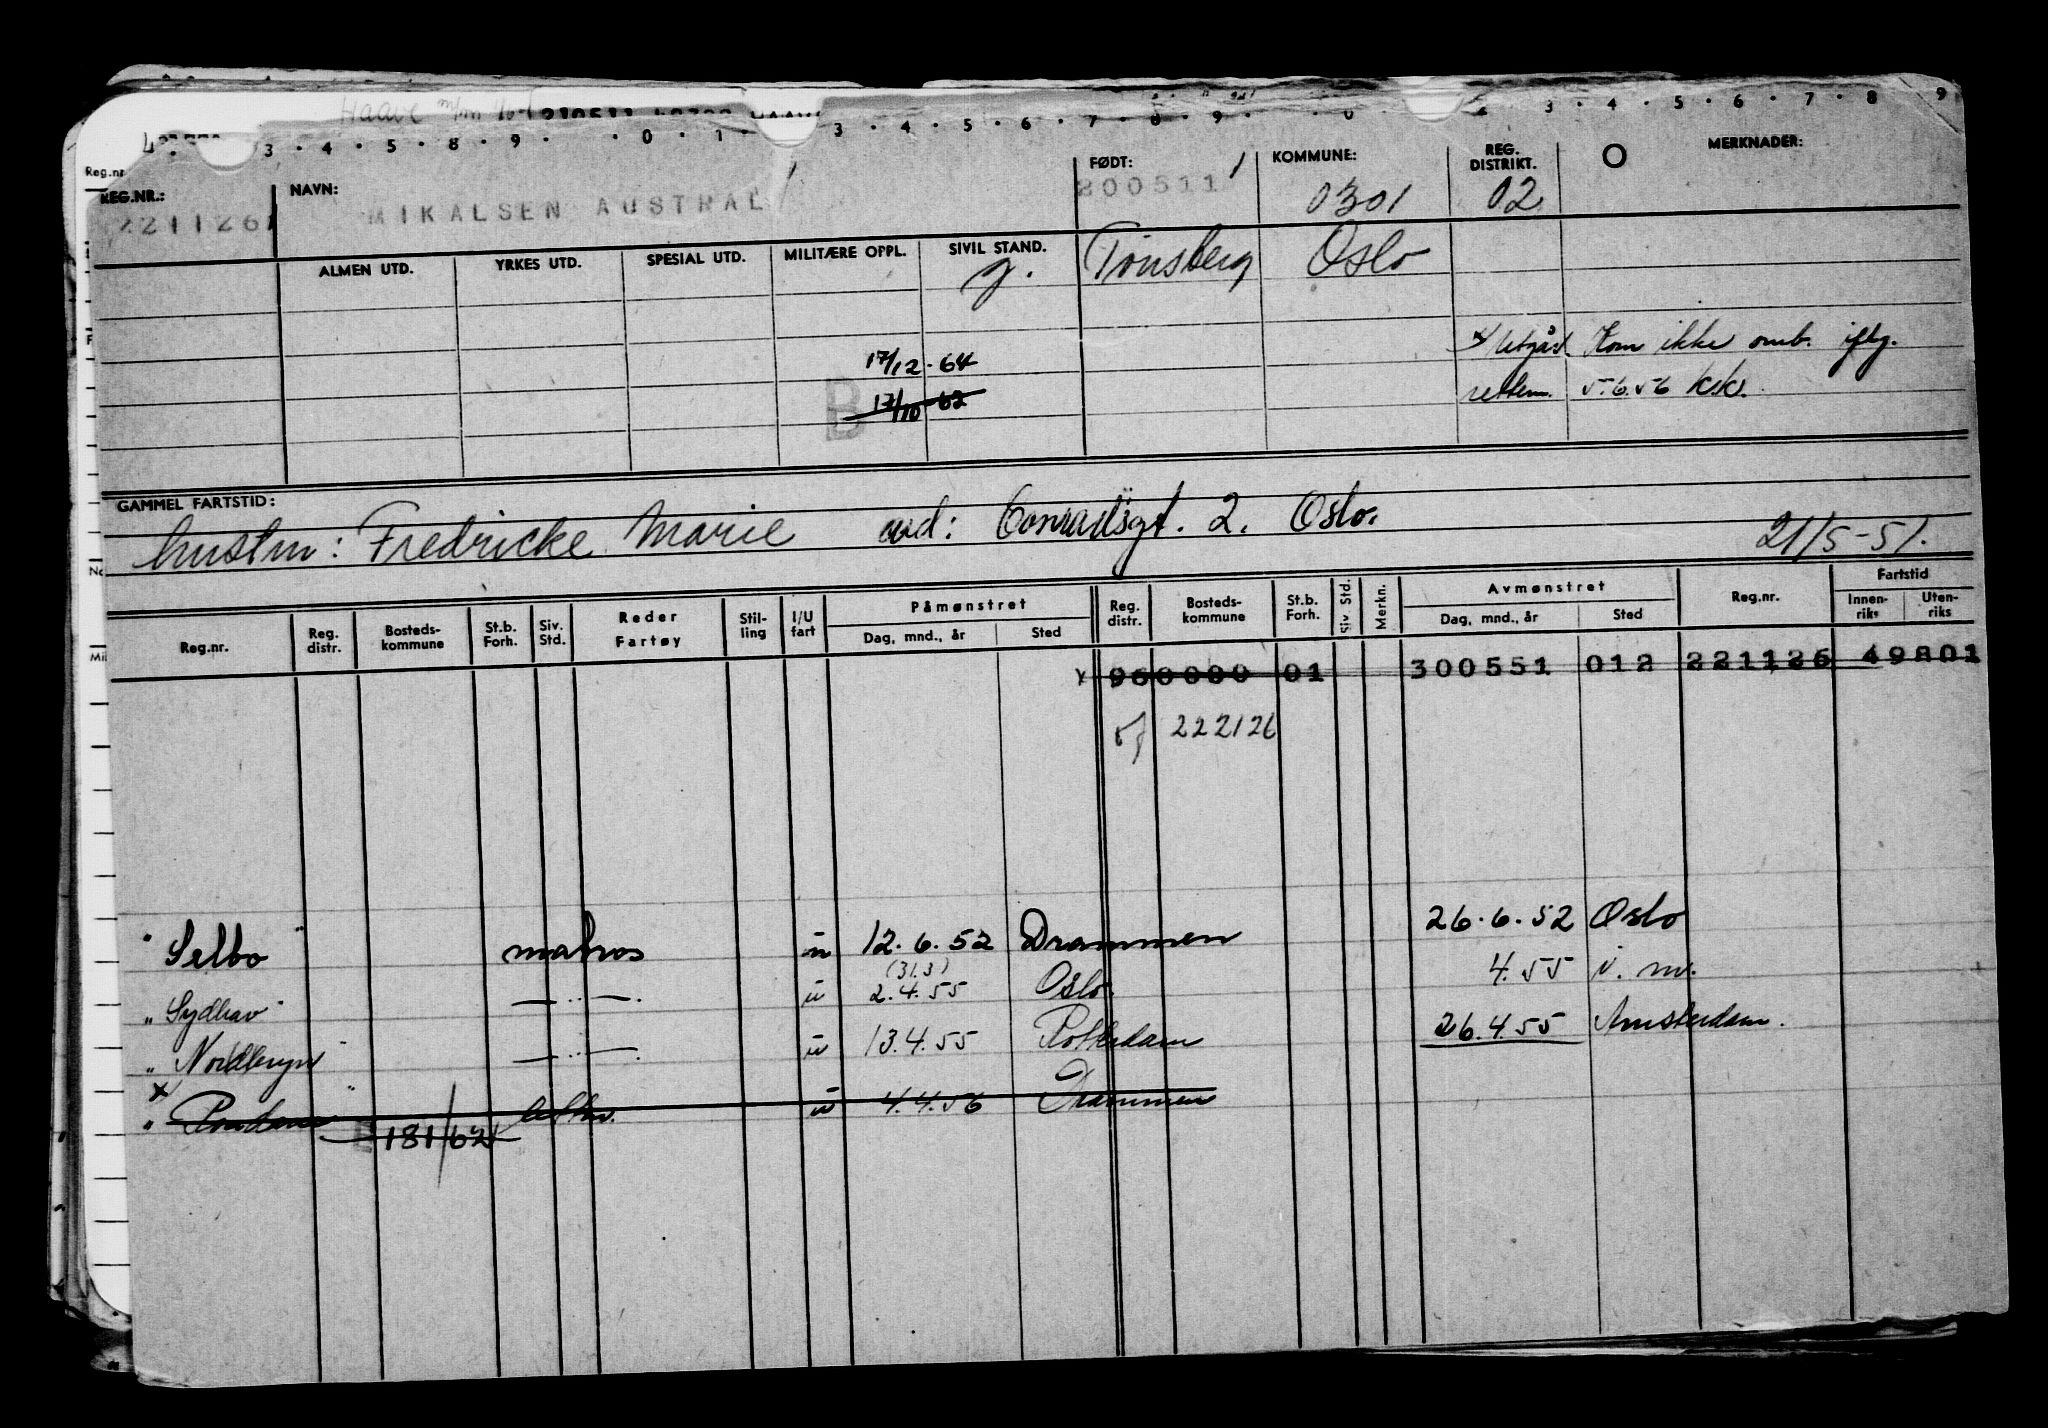 Haave
210511
3 · 4 · 5 · 8 · 9 · 0 · 1 3 · 4 · 5 · 6 · 7 · 8 · 9 · 0 2 3 · 4 · 5 · 6 · 7 · 8 9
Reg.nr
REG.NR.: NAVN: FØDT: KOMMUNE: REG. DISTRIKT. MERKNADER:
221126 MIKALSEN AUSTRAL 200511 0301 02
ALMEN UTD. YRKES UTD. SPESIAL UTD. MILITÆRE OPPL. SIVIL STAND. Tønsberg Oslo
g.
17/12 - 64 x/ Utgår. Kom ikke omb. iflg.
B 17/10 - 62 rettem. 5.6.56 KK.
GAMMEL FARTSTID:
hustru: Fredricke Marie adr: Conradisgt. 2. Oslo. 21/5-51.
Reg.nr. Reg. distr. Bosteds- kommune St.b. Forh. Siv. Std. Reder Fartøy Stil- ling I/U fart Påmønstret Dag, mnd., år Sted Reg. distr. Bosteds- kommune St.b. Forh. Siv. Std. Merkn. Avmønstret Dag, mnd., år Sted Reg.nr. Fartstid Innen- riks Uten- riks
960000 01 300551 012 221126 49801
222126
"Selbo" matros u 12.6.52 Drammen 26.6.52 Oslo
(31.3)
"Sydhav" —..— u 2.4.55 Oslo. 4.55 i. nv.
"Nordbryn" —..— u 13.4.55 Rotterdam 26.4.55 Amsterdam.
x
" u 4.4.56 Drammen
181/62